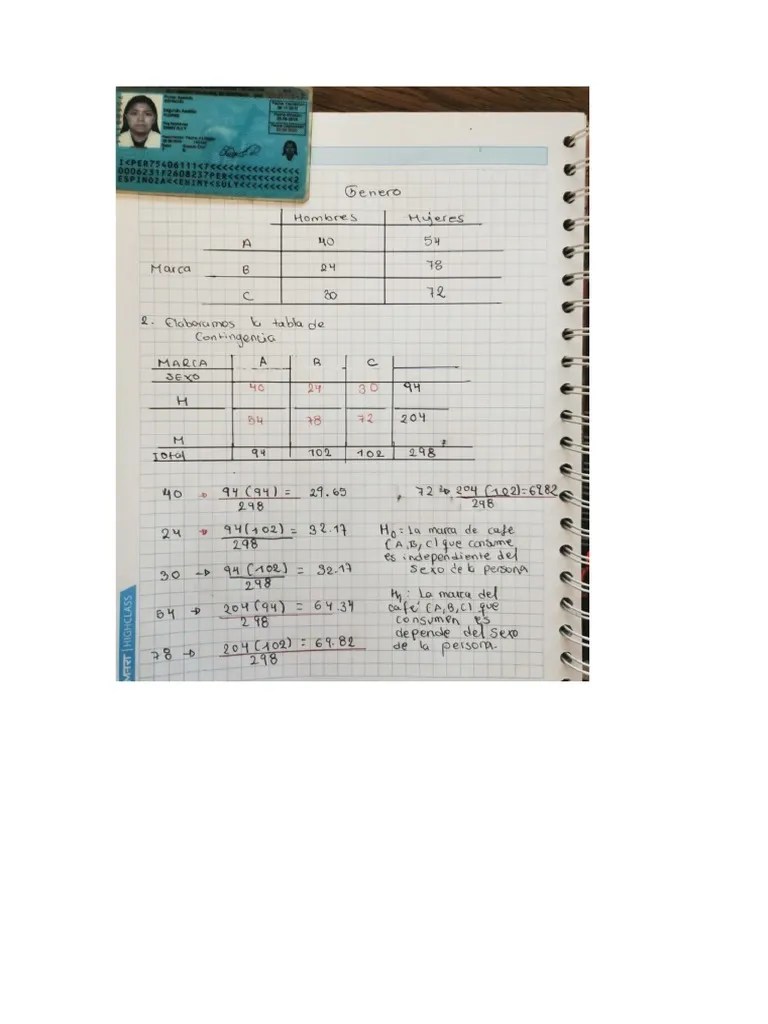 I<PER75406111<7<<<<<<<<<<<<<<<
0006231F2608237PER<<<<<<<<<<<2
ESPINOZA<<ENIMY<SULY<<<<<<<<<<
Genero
Hombres Mujeres
A 40 54
Marca B 24 78
C 30 72
2. Elaboramos la tabla de
Contingencia
MARCA A B C
SEXO
H 40 24 30 94
M 54 78 72 204
Total 94 102 102 298
40 → 94(94) = 29.65
298
, 72 → 204(102)=69.82
298
24 → 94(102) = 32.17
298
30 → 94(102) = 32.17
298
54 → 204(94) = 64.34
298
78 → 204(102) = 69.82
298
H0: La marca de cafe
(A,B,C) que consume
es independiente del
sexo de la persona
H1: La marca del
café (A,B,C) que
consumen es
depende del sexo
de la persona.
HIGHCLASS